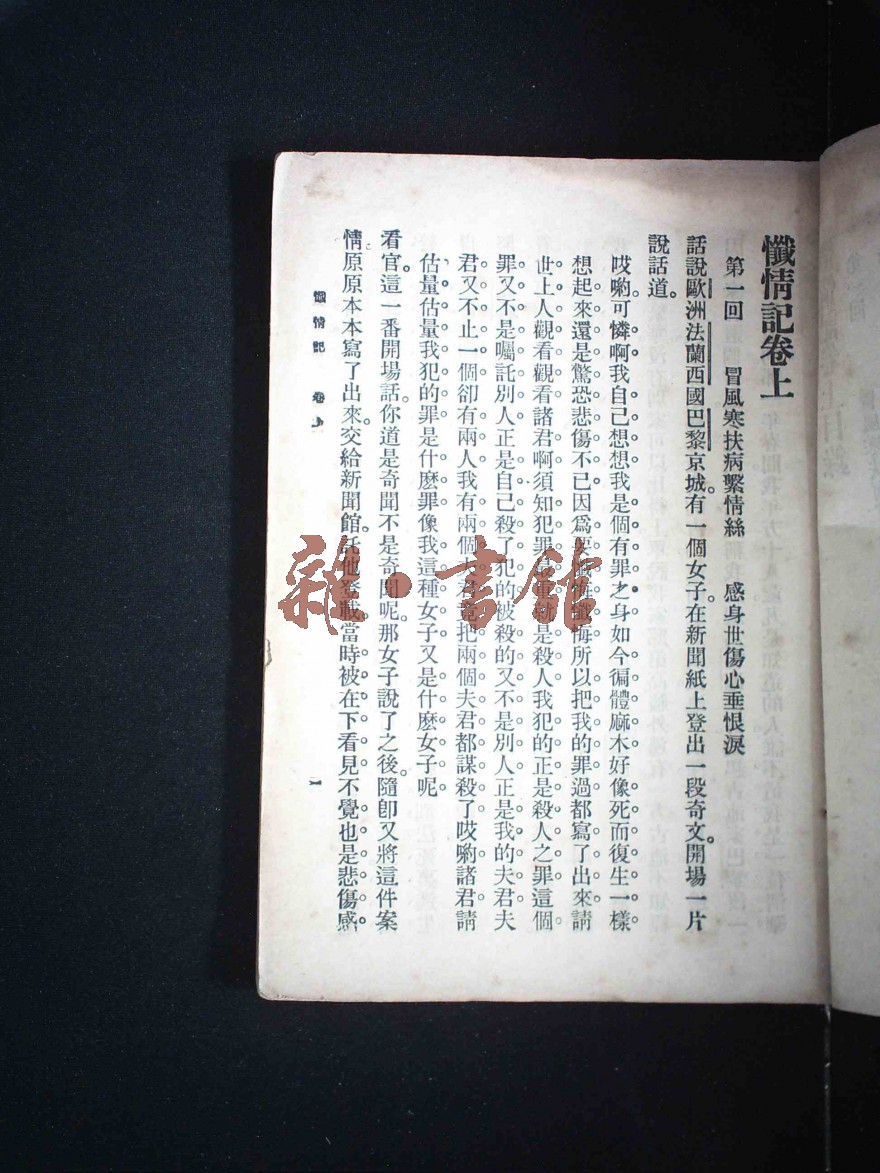 懺情記卷上
第一回 冒風寒扶病繫情絲 感身世傷心垂恨淚
話說歐洲法蘭西國巴黎京城。有一個女子在新聞紙上登出一段奇文。開場一片
說話道。
哎喲可憐啊我自己想想我是個有罪之身如今徧體麻木好像死而復生一樣
想起來還是驚恐悲傷不已因爲要懺悔懺悔所以把我的罪過都寫了出來請
世上人觀看觀看諸君啊須知犯罪最重就是殺人我犯的正是殺人之罪這個
罪又不是囑託別人正是自己殺了犯的被殺的又不是別人正是我的夫君夫
君又不止一個卻有兩人我有兩個夫君竟把兩個夫君都謀殺了哎喲諸君請
估量估量我犯的罪是什麽罪像我這種女子又是什麽女子呢
看官。這一番開場話。你道是奇聞不是奇聞呢。那女子說了之後。隨卽又將這件案
情。原原本本寫了出來。交給新聞館。託他登載當時被在下看見不覺也是悲傷感
懺情記 卷上 一
雜·書館